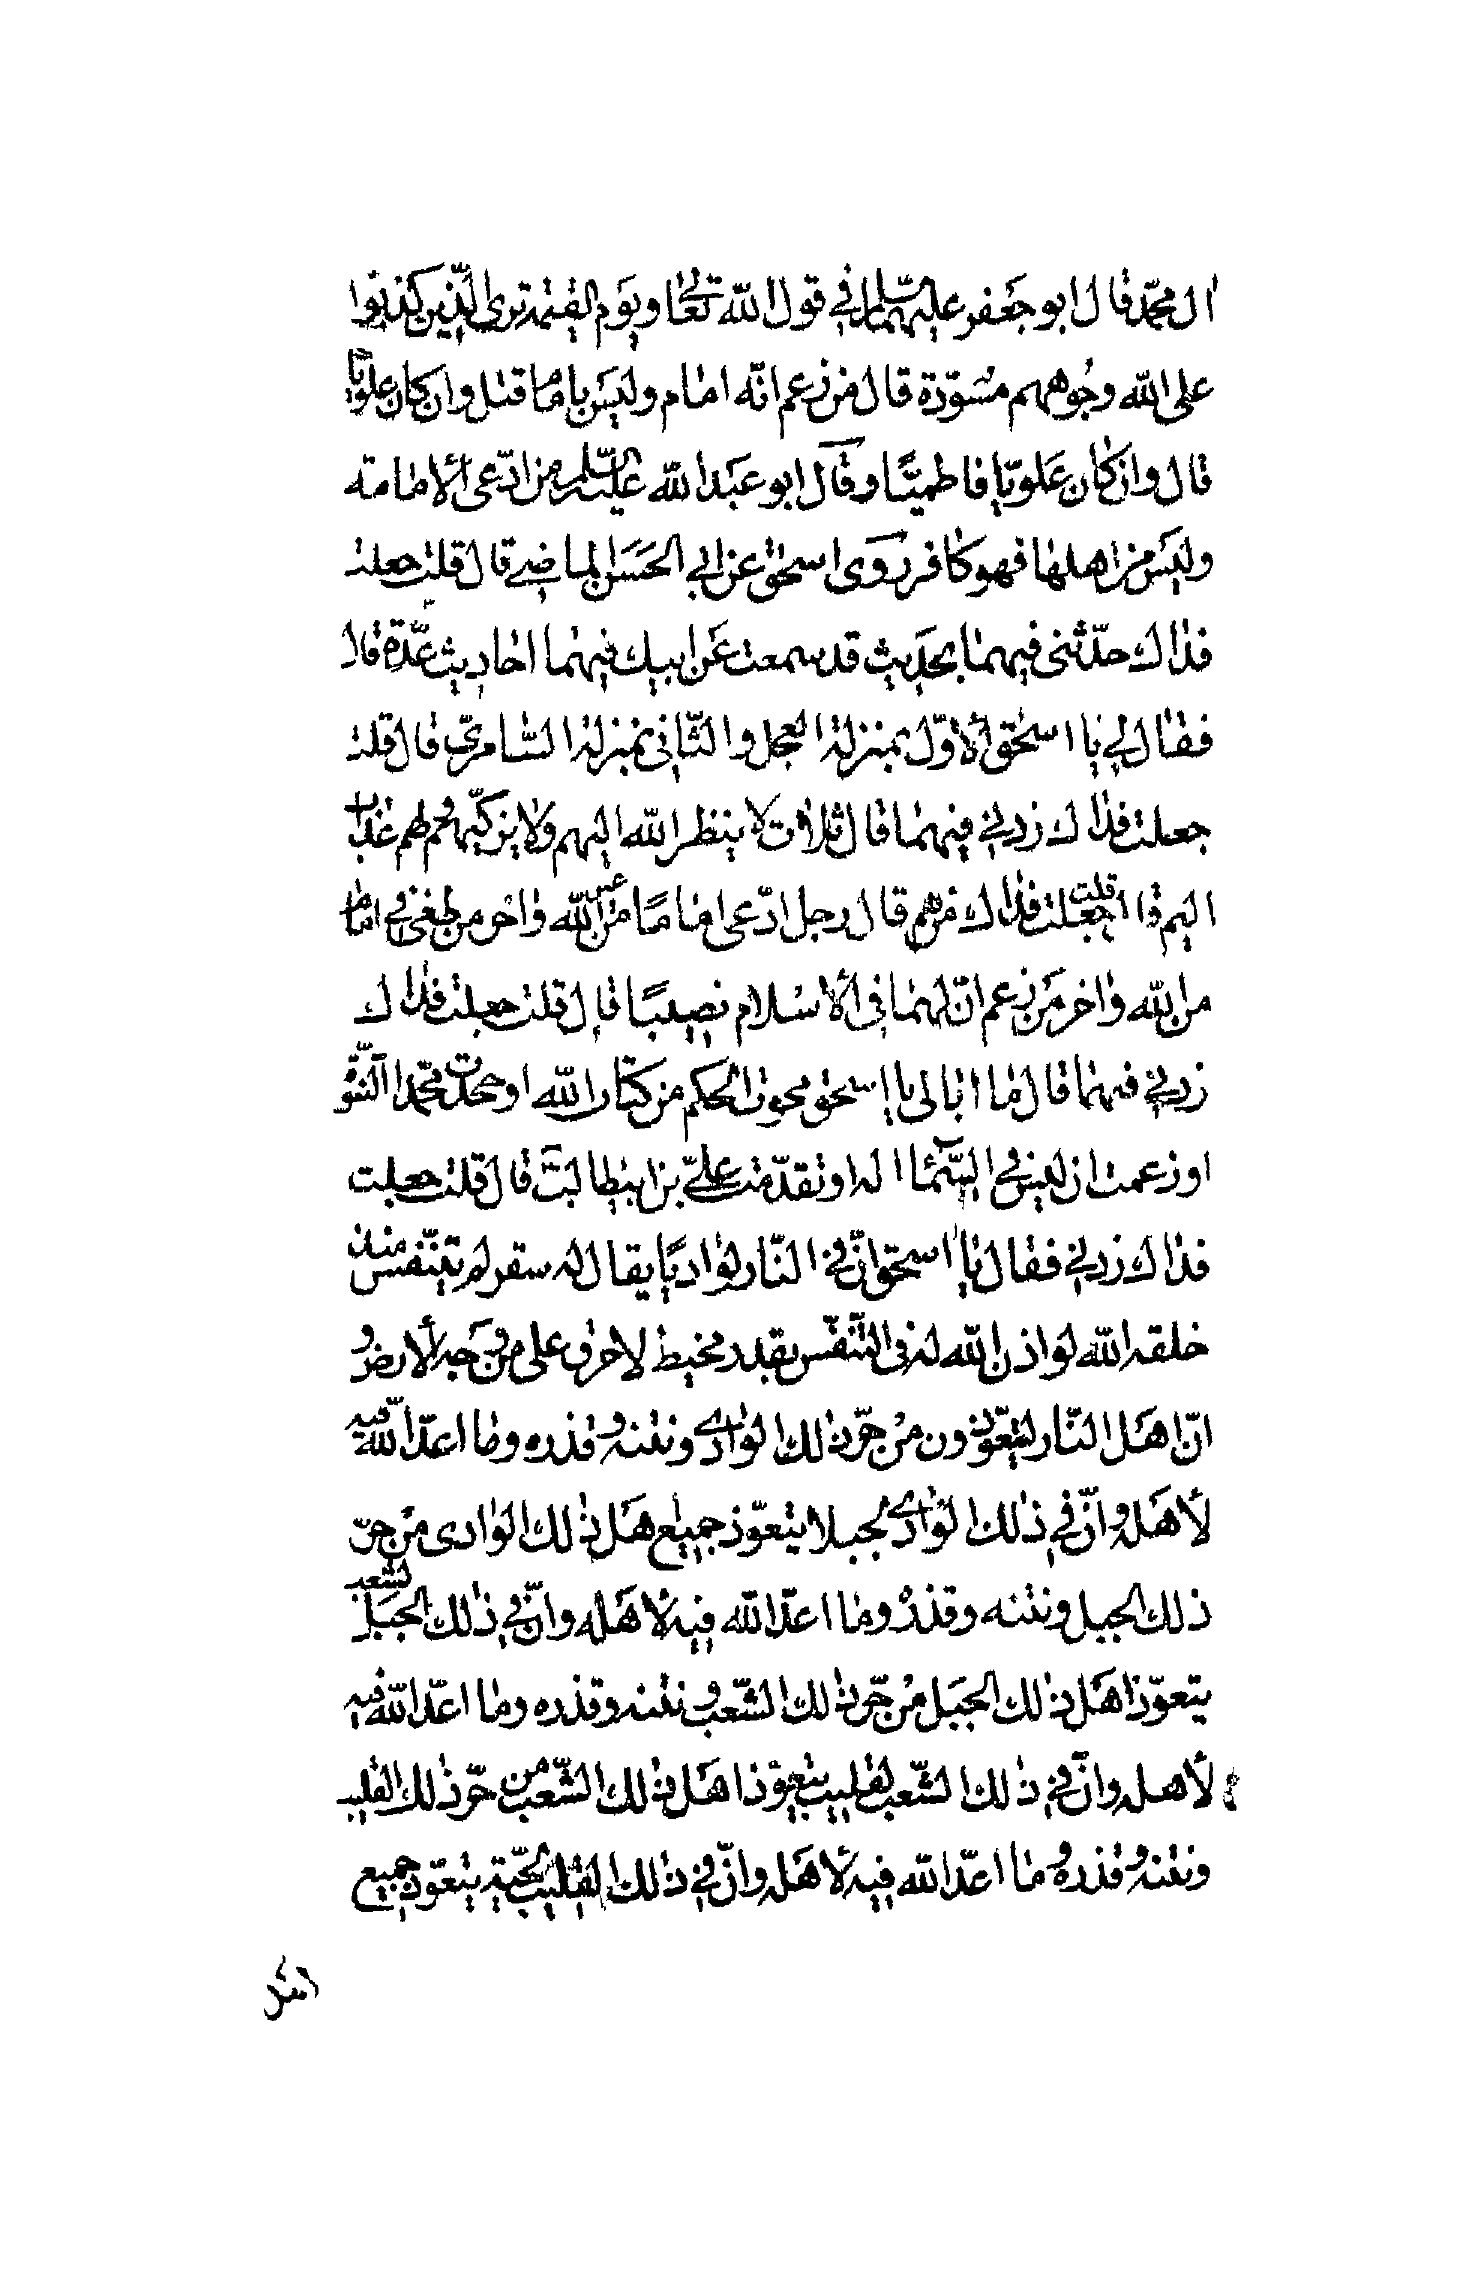 ال محمّد قال ابو جعفر عليهما السّلم في قول الله تعالى ويوم القيمة ترى الّذين كذبوا
على الله وجوههم مسوّدة قال من زعم انّه امام وليس بامام قيل وان كان علويّا
قال وان كان علويّا فاطميّا وقال ابو عبد الله عليه السّلم من ادّعى الامامة
وليس من اهلها فهو كافر روى اسحق عن ابي الحسن الماضي قال قلت جعلت
فداك حدّثني فيهما بحديث قد سمعت عن ابيك فيهما احاديث عدّة قال
فقال لي يا اسحق الاوّل بمنزلة العجل والثّاني بمنزلة السّامريّ قال قلت
جعلت فداك زدني فيهما قال ثلاثة لا ينظر الله اليهم ولا يزكّيهم ولهم عذاب
اليم قال قلت جعلت فداك من هم قال رجل ادّعى اماما من غير الله واخر من طغى في امام
من الله واخر من زعم انّ لهما في الاسلام نصيبا قال قلت جعلت فداك
زدني فيهما قال ما ابالى يا اسحق محوت المحكم من كتاب الله او جحدت محمّدا النبّوة
او زعمت ان ليس في السّماء اله او تقدّمت علىّ بن ابيطالب قال قلت جعلت
فداك زدني فقال يا اسحق انّ في النّار لواديا يقال له سقر لم يتنفّس منذ
خلقه الله لو اذن الله له في التّنفّس بقدر مخيط لاحرق على من وجه الارض و
انّ اهل النّار ليتعوّذون من حرّ ذلك الوادي ونتنه وقذره وما اعدّ الله فيه
لاهله وانّ في ذلك الوادي لجبلا يتعوّذ جميع اهل ذلك الوادى من حرّ
ذلك الجبل ونتنه وقذره وما اعدّ الله فيه لاهله وانّ في ذلك الجبل لشعب
يتعوّذ اهل ذلك الجبل من حرّ ذلك الشّعب ونتنه وقذره وما اعدّ الله فيه
لاهله وانّ في ذلك الشّعب لقليب يتعوّذ اهل ذلك الشّعب من حرّ ذلك القليب
ونتنه وقذره وما اعدّ الله فيه لاهله وانّ في ذلك القليب لحيّة يتعوّذ جميع